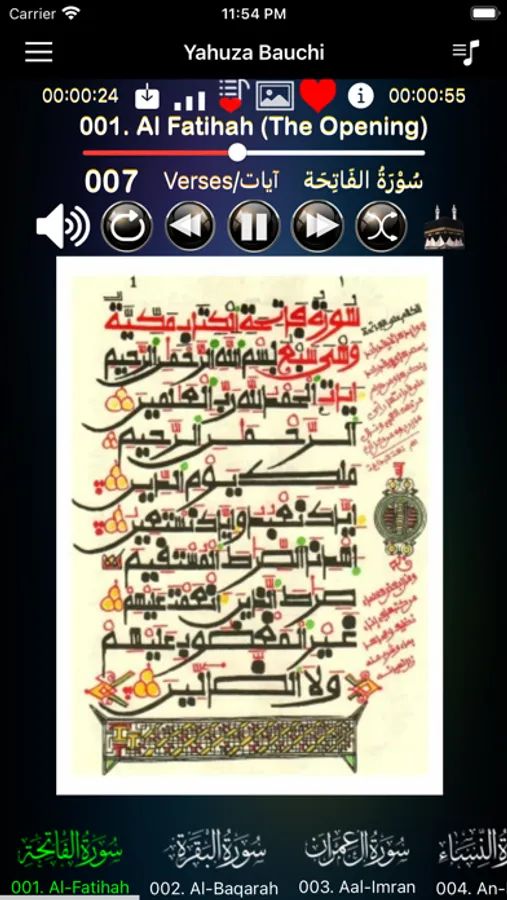 Carrier 11:54 PM
Yahuza Bauchi
00:00:24 00:00:55
001. Al Fatihah (The Opening)
007 Verses/آيات سُوْرَةُ الفَاتِحَة
1 ١
سورة فاتحة الكتاب مكية
وهي سبع بسم الله الرحمن الرحيم
ايات الحمد لله رب العلمين
الرحمن الرحيم
ملك يوم الدين
اياك نعبد واياك نستعين
اهدنا الصرط المستقيم
صرط الذين انعمت عليهم
غير المغضوب عليهم
ولا الضالين
سورة الفاتحة سورة البقرة سورة آل عمران سورة النساء
001. Al-Fatihah 002. Al-Baqarah 003. Aal-Imran 004. An-